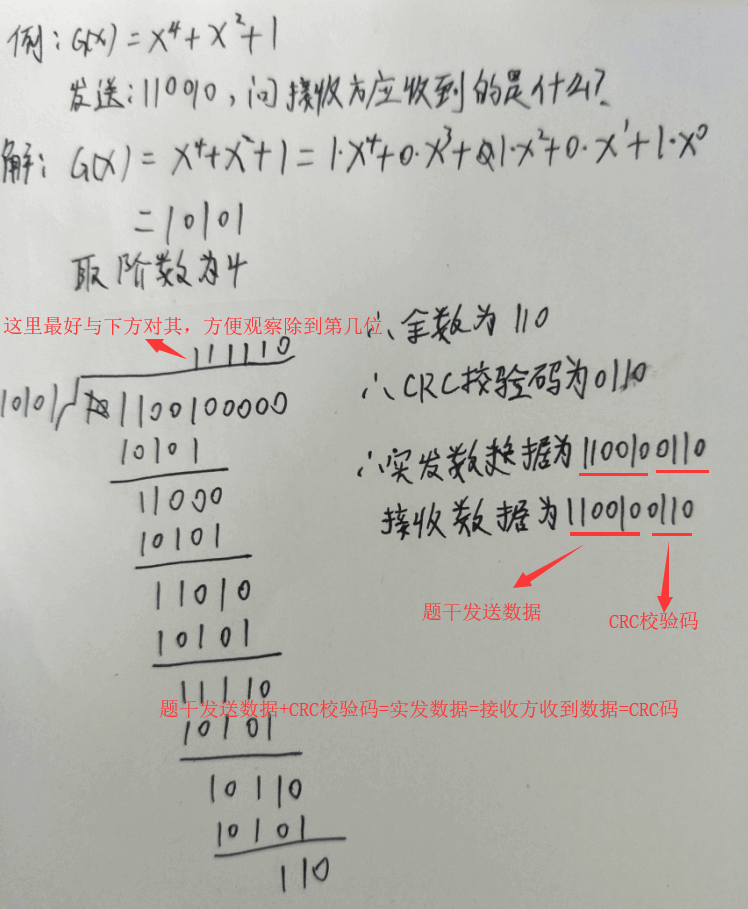 例：G(x)=x⁴+x²+1
发送：110010，问接收方应收到的是什么？
解：G(x)=x⁴+x²+1=1·x⁴+0·x³+1·x²+0·x¹+1·x⁰
=10101
取阶数为4
这里最好与下方对其，方便观察除到第几位
111110
10101 1100100000
10101
11000
10101
11010
10101
11110
10101
10110
10101
110
∴余数为110
∴CRC校验码为0110
∴实发数据为1100100110
接收数据为1100100110
题干发送数据
CRC校验码
题干发送数据+CRC校验码=实发数据=接收方收到数据=CRC码